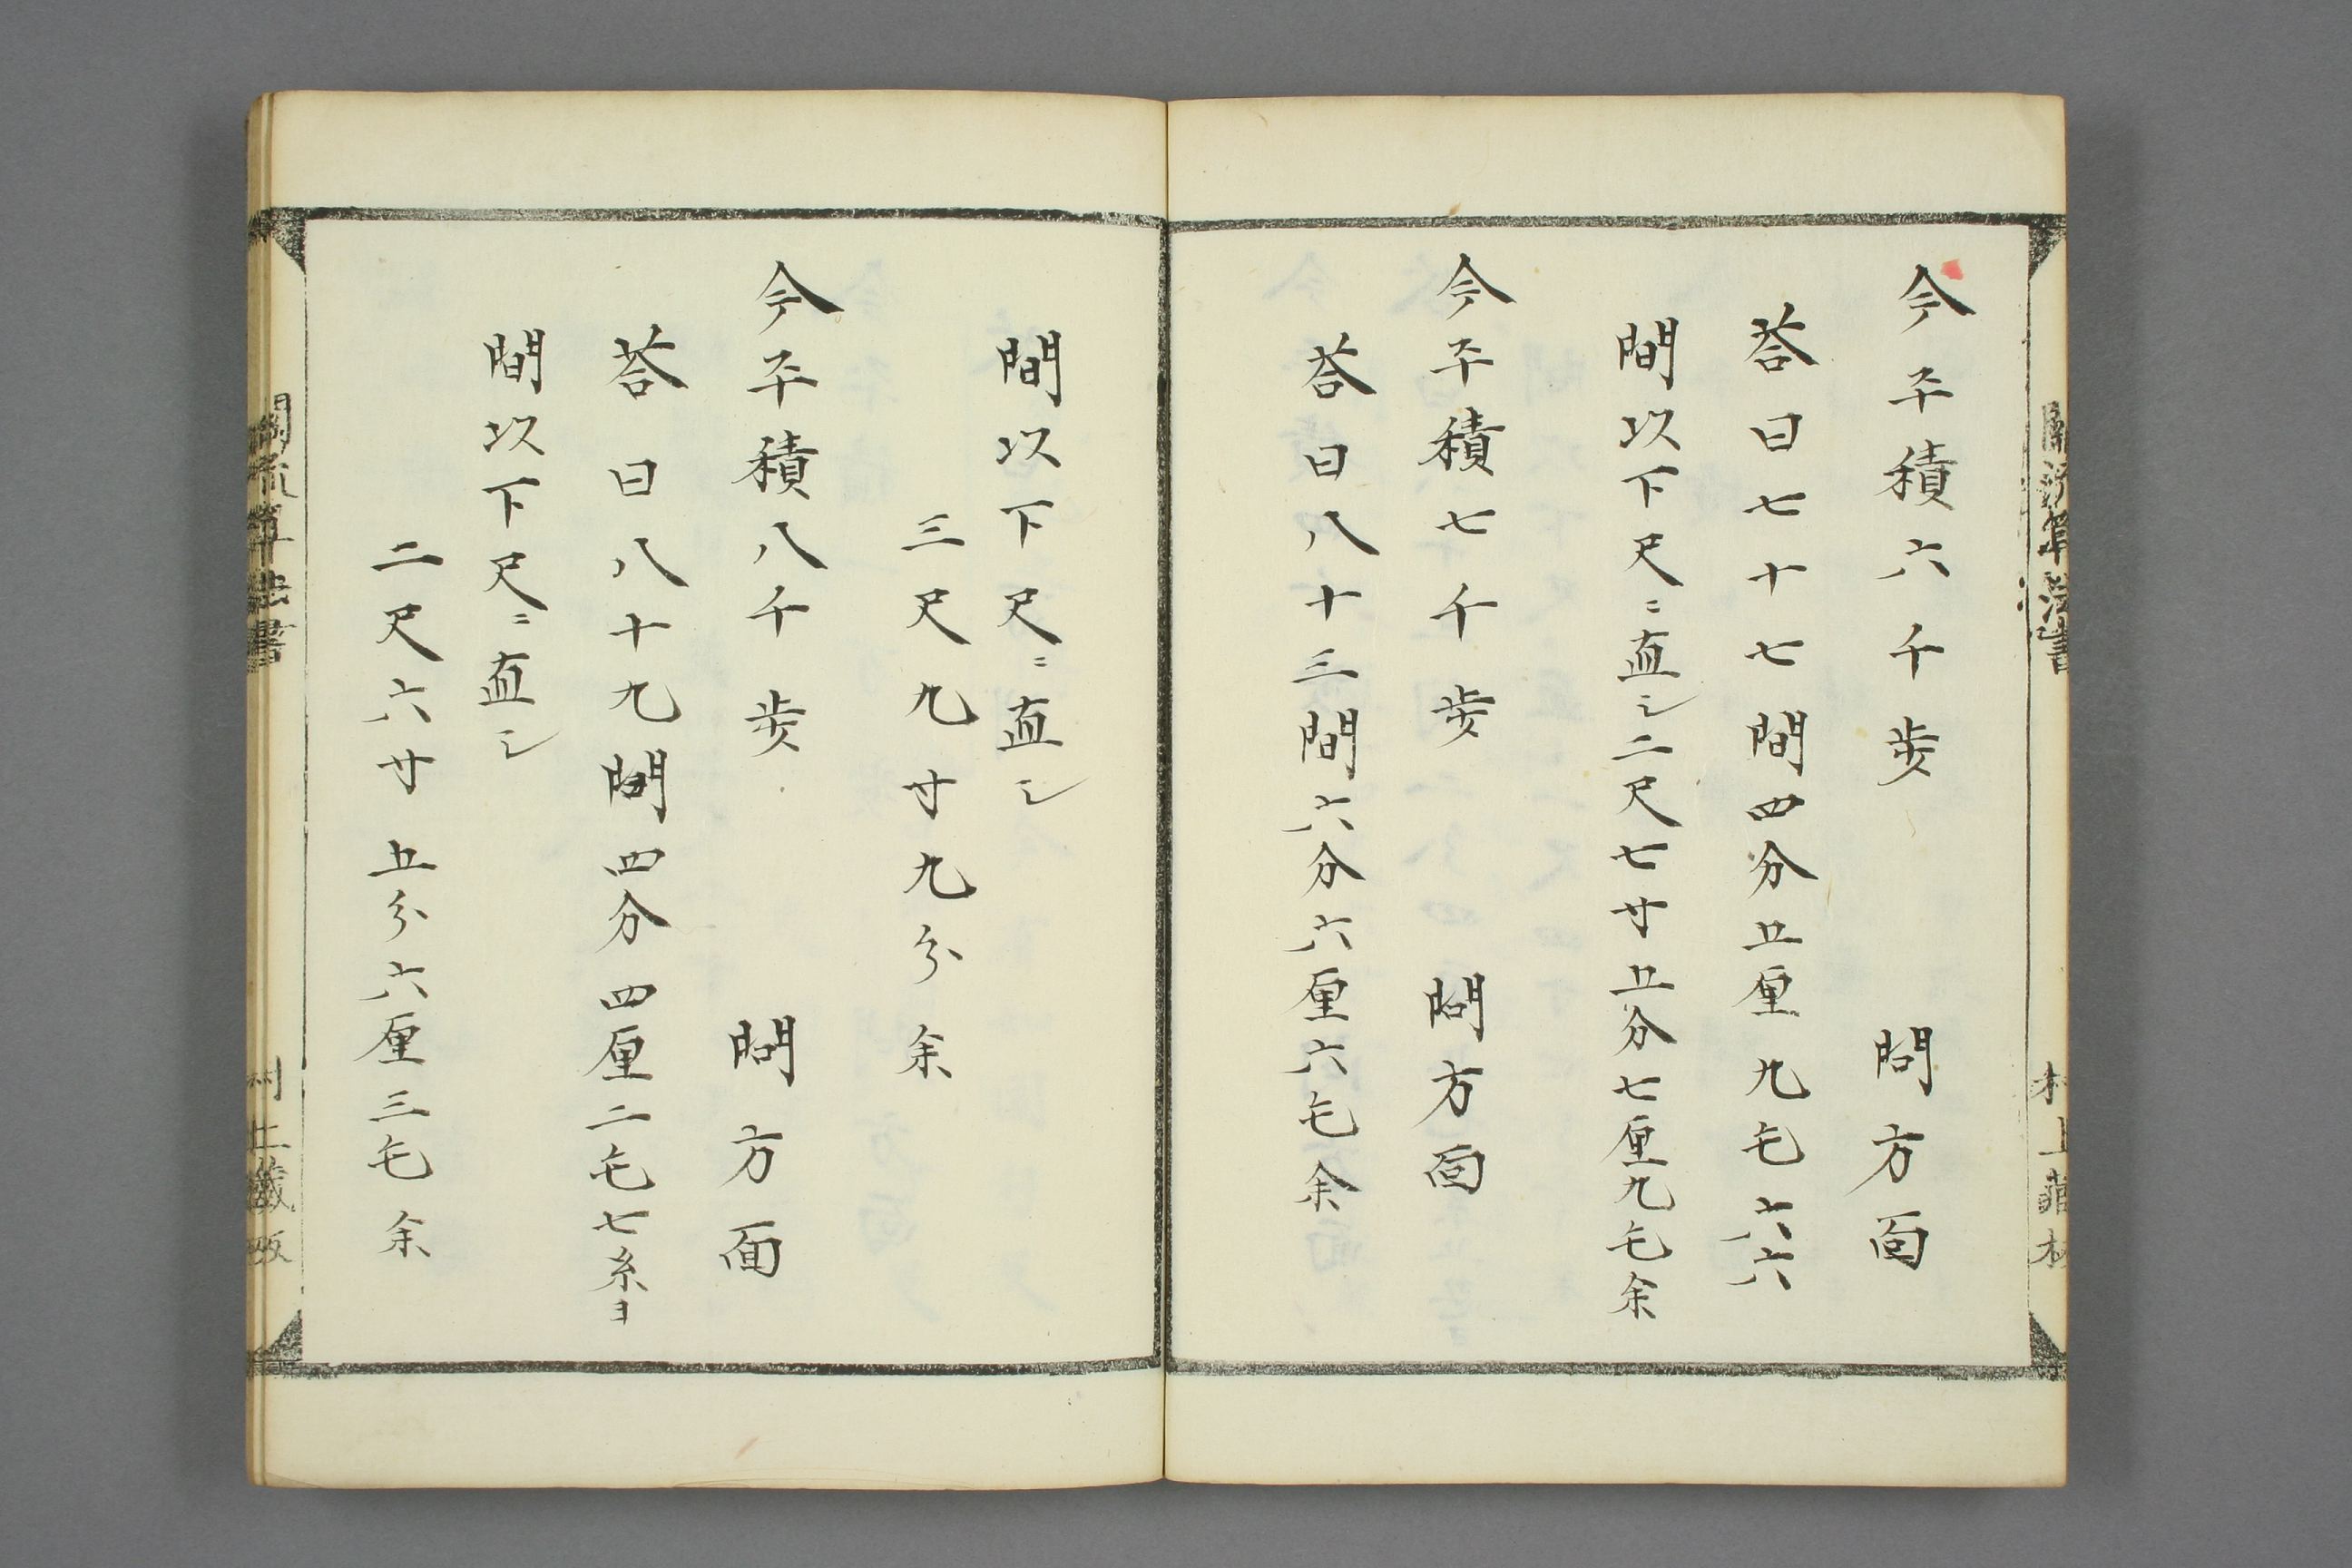 今平積六千歩　問方面
荅曰七十七間四分五厘九毛六六
間以下尺ニ直シ二尺七寸五分七厘九毛余
今平積七千歩　問方面
荅曰八十三間六分六厘六毛余
間以下尺ニ直シ
三尺九寸九分余
今平積八千歩　問方面
荅曰八十九間四分四厘二毛七糸ヨ
間以下尺ニ直シ
二尺六寸五分六厘三毛余
關流算法書
村上藏板